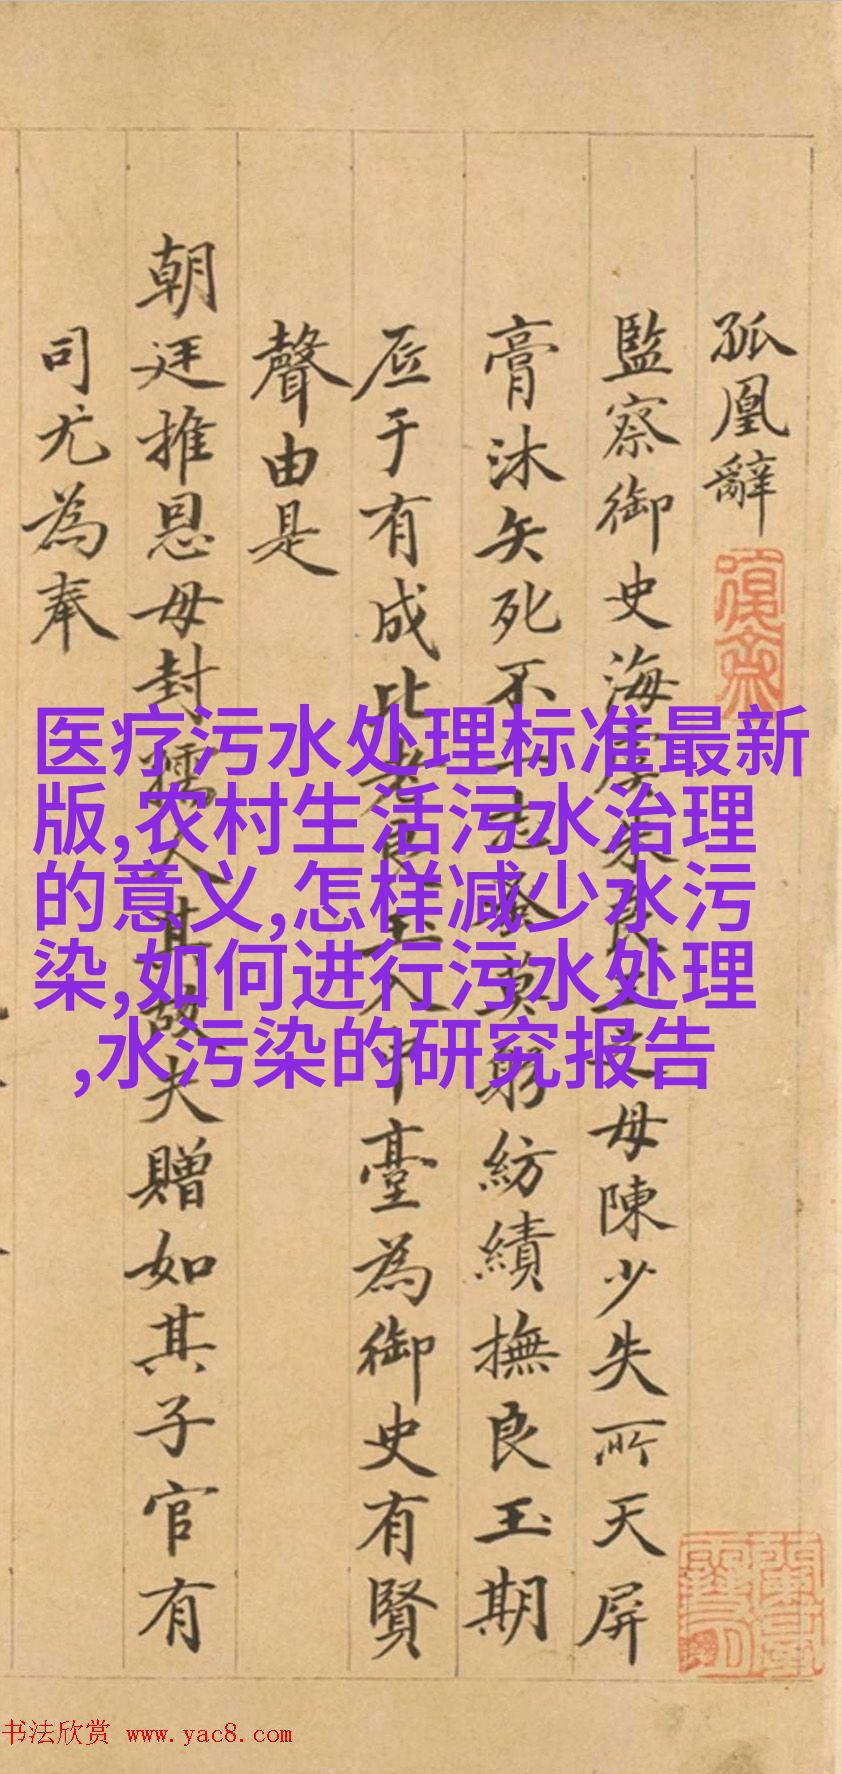 孤凰辭
監察御史海虞朱良之母陳少失所天屏
膏沐矢死不二志莫躬紡績撫良玉期
厎于有成比老良玉入中臺為御史有賢
聲由是
朝廷推恩母封孺人其故夫贈如其子官有
司尤為奉
医疗污水处理标准最新
版,农村生活污水治理
的意义,怎样减少水污
染,如何进行污水处理
,水污染的研究报告
书法欣赏 www.yac8.com